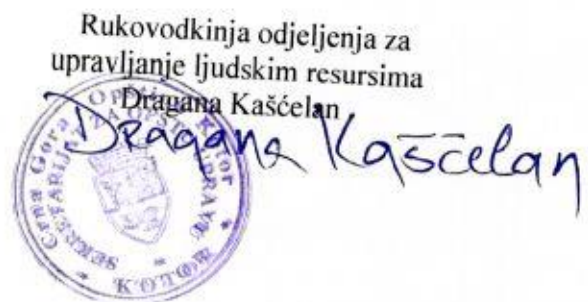 Rukovodkinja odjeljenja za
upravljanje ljudskim resursima
Dragana Kašćelan
Dragana Kašćelan
Crna Gora Opština Kotor
SEKRETARIJAT ZA OPŠTU UPRAVU
KOTOR